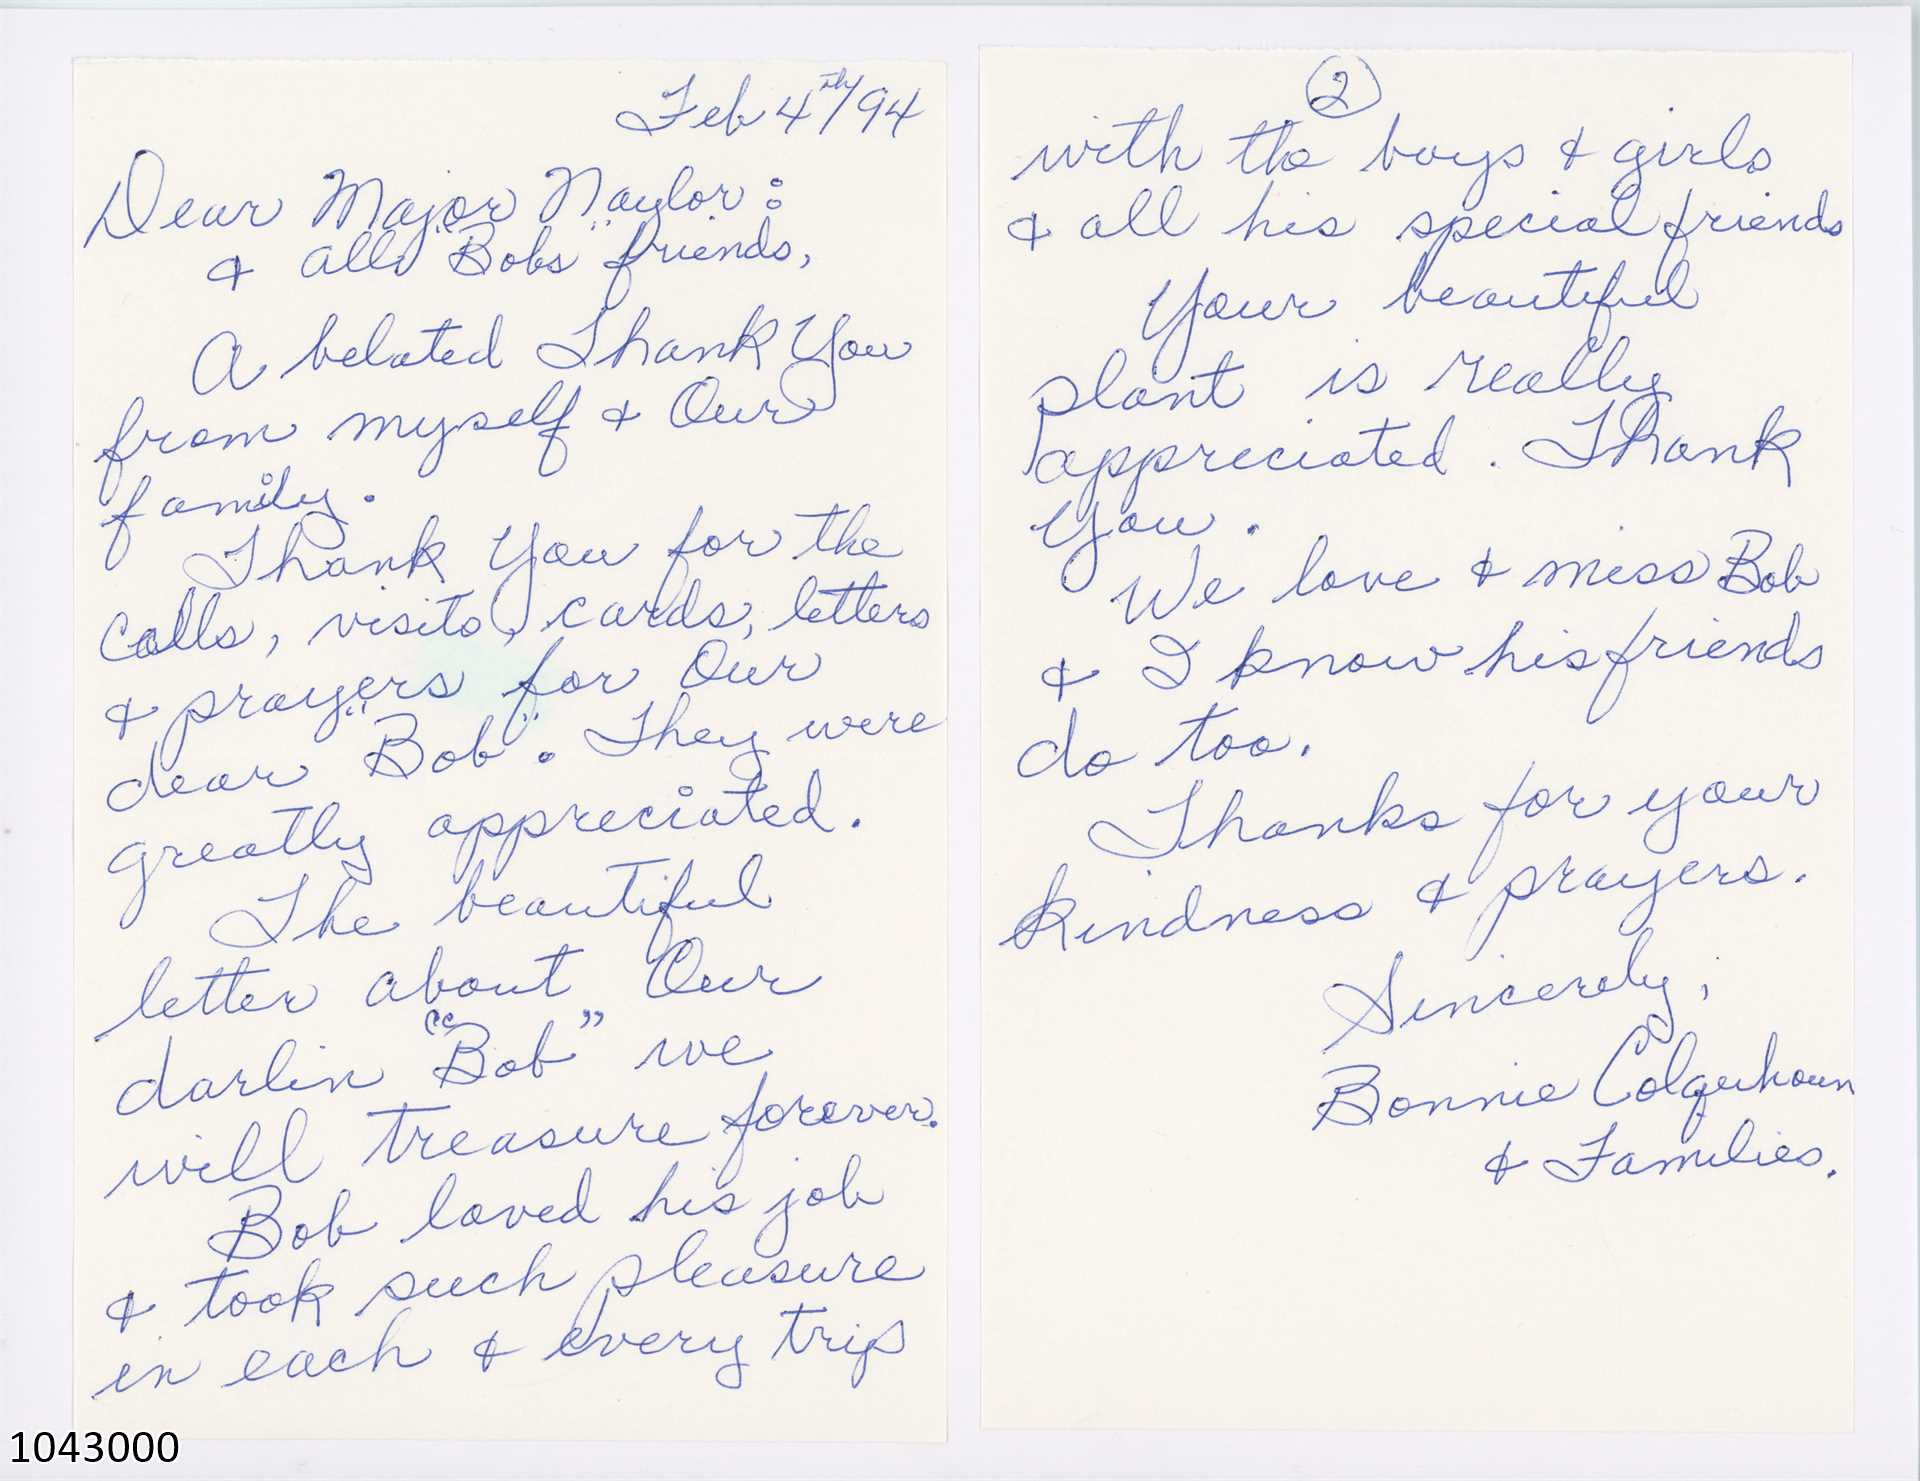 Feb 4th/94
Dear Major Naylor:
& all "Bobs" friends,
A belated Thank You
from myself & Our
family.
Thank You for the
calls, visits, cards, letters
& prayers for Our
dear "Bob". They were
greatly appreciated.
The beautiful
letter about Our
darlin "Bob" we
will treasure forever.
Bob loved his job
& took such pleasure
in each & every trip
2
with the boys & girls
& all his special friends
Your beautiful
plant is really
appreciated. Thank
You.
We love & miss Bob
& I know his friends
do too.
Thanks for your
kindness & prayers.
Sincerely,
Bonnie Colquhoun
& Families.
1043000